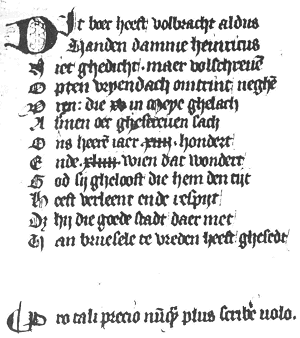 Dit boec heeft volbracht aldus
Vanden damme heinricus
Niet ghedicht . maer volschreuē
Opten vryendach omtrint neghē
Vren : die xv in Meye ghelach
Alsmen oec ghescreuen sach
Ons heerē iaer .xiiij. hondert
Ende .xliiij. wien dat wondert
God sij gheloeft die hem den tijt
Heeft verleent ende respijt
Dz hij die goede stadt daer met
Van bruesele te vreden heeft ghesedt
Pro tali precio nūq̄ plus scribe uolo.